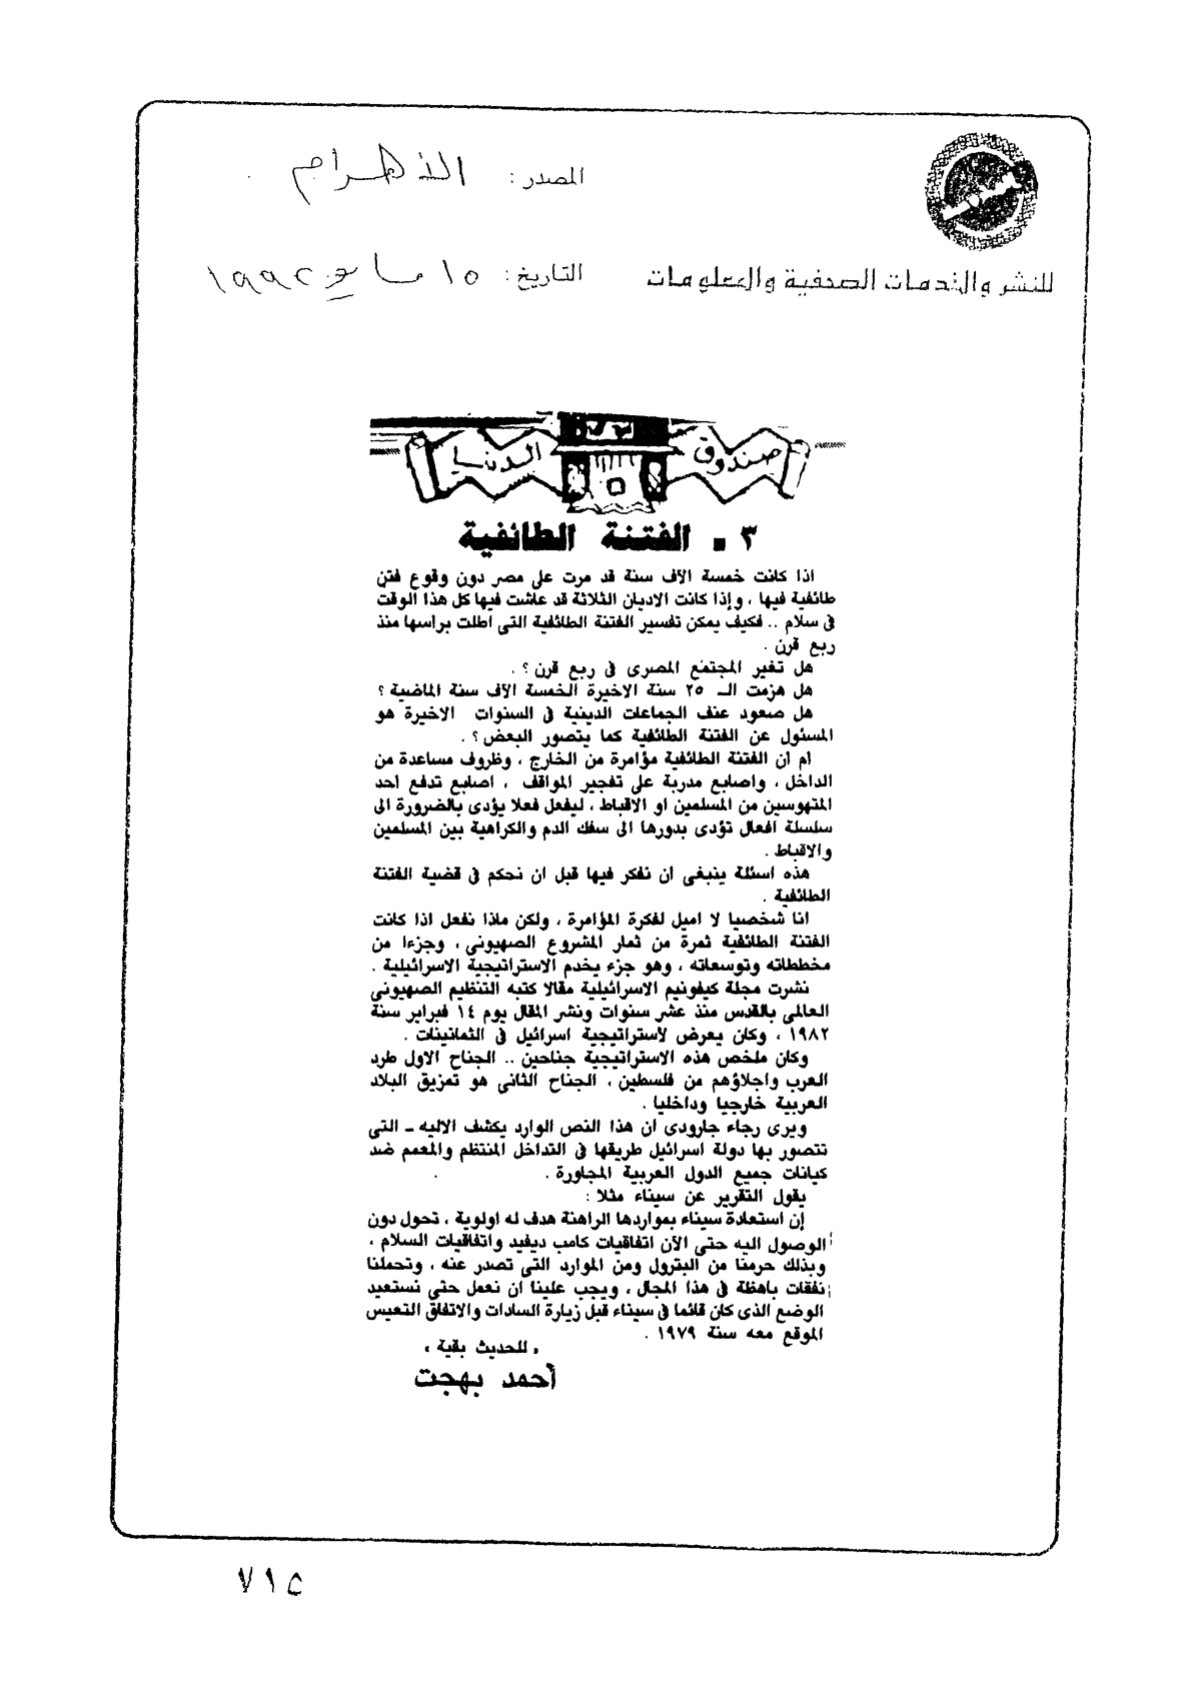 المصدر: الأهرام
التاريخ: ١٥ مايو ١٩٩٢
للنشر والخدمات الصحفية والمعلومات
صندوق الدنيا
٣ - الفتنة الطائفية
اذا كانت خمسة الاف سنة قد مرت على مصر دون وقوع فتن
طائفية فيها ، وإذا كانت الاديان الثلاثة قد عاشت فيها كل هذا الوقت
فى سلام .. فكيف يمكن تفسير الفتنة الطائفية التى اطلت براسها منذ
ربع قرن .
هل تغير المجتمع المصرى فى ربع قرن ؟ .
هل هزمت الـ ٢٥ سنة الاخيرة الخمسة الاف سنة الماضية ؟
هل صعود عنف الجماعات الدينية فى السنوات الاخيرة هو
المسئول عن الفتنة الطائفية كما يتصور البعض ؟ .
ام ان الفتنة الطائفية مؤامرة من الخارج ، وظروف مساعدة من
الداخل ، واصابع مدربة على تفجير المواقف ، اصابع تدفع احد
المتهوسين من المسلمين او الاقباط ، ليفعل فعلا يؤدى بالضرورة الى
سلسلة افعال تؤدى بدورها الى سفك الدم والكراهية بين المسلمين
والاقباط .
هذه اسئلة ينبغى ان نفكر فيها قبل ان نحكم فى قضية الفتنة
الطائفية .
انا شخصيا لا اميل لفكرة المؤامرة ، ولكن ماذا نفعل اذا كانت
الفتنة الطائفية ثمرة من ثمار المشروع الصهيونى ، وجزءا من
مخططاته وتوسعاته ، وهو جزء يخدم الاستراتيجية الاسرائيلية .
نشرت مجلة كيفونيم الاسرائيلية مقالا كتبه التنظيم الصهيونى
العالمى بالقدس منذ عشر سنوات ونشر المقال يوم ١٤ فبراير سنة
١٩٨٢ ، وكان يعرض لأستراتيجية اسرائيل فى الثمانينات .
وكان ملخص هذه الاستراتيجية جناحين .. الجناح الاول طرد
العرب واجلاؤهم من فلسطين ، الجناح الثانى هو تمزيق البلاد
العربية خارجيا وداخليا .
ويرى رجاء جارودى ان هذا النص الوارد يكشف الاليه ـ التى
تتصور بها دولة اسرائيل طريقها فى التداخل المنتظم والمعمم ضد
كيانات جميع الدول العربية المجاورة .
يقول التقرير عن سيناء مثلا :
إن استعادة سيناء بمواردها الراهنة هدف له اولوية ، تحول دون
الوصول اليه حتى الآن اتفاقيات كامب ديفيد واتفاقيات السلام ،
وبذلك حرمنا من البترول ومن الموارد التى تصدر عنه ، وتحملنا
نفقات باهظة فى هذا المجال ، ويجب علينا ان نعمل حتى نستعيد
الوضع الذى كان قائما فى سيناء قبل زيارة السادات والاتفاق التعيس
الموقع معه سنة ١٩٧٩ .
« للحديث بقية »
أحمد بهجت
٧١٥